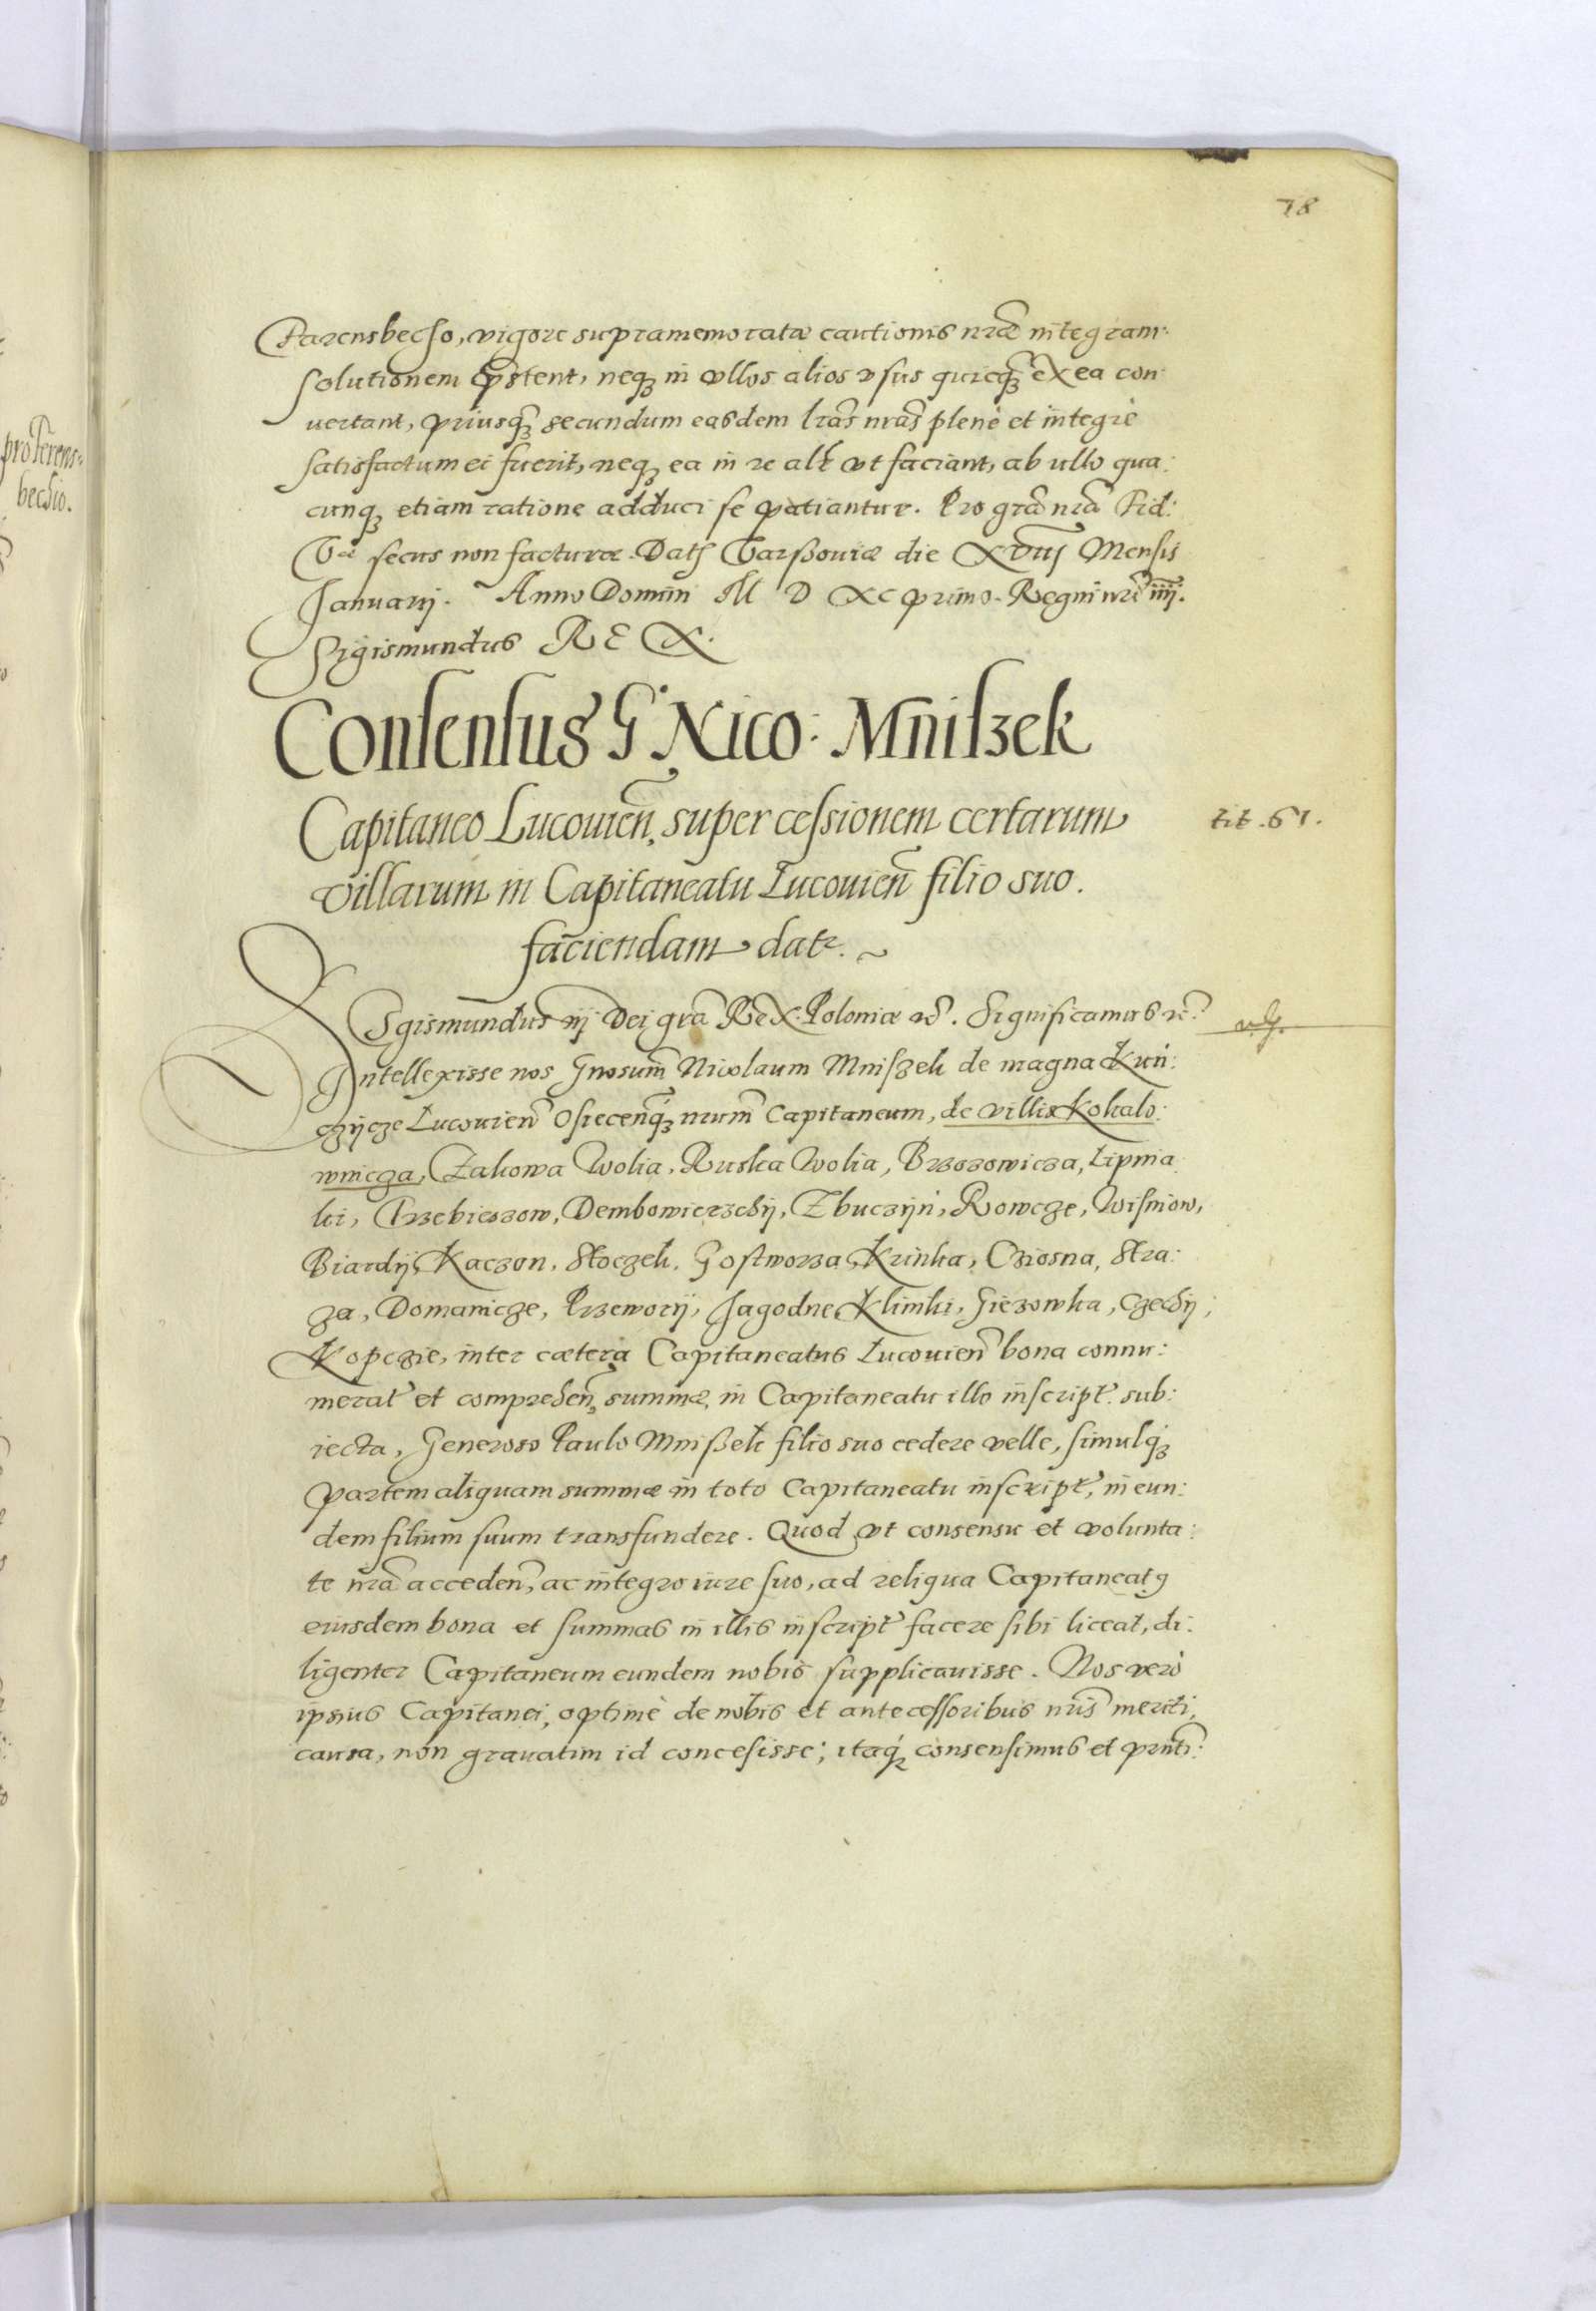 78
Farensbecho, vigore supramemoratæ cautionis nrãe integram
solutionem pr̃stent, neq₃ in vllos alios vsus quicq̃₃ ex ea con
uertant, priusq̃₃ secundum easdem lr̃as nr̃as plenè et integrè
satisfactum ei fuerit, neq₃ ea in re alr̃ vt faciant, ab vllo qua:
cunq₃ etiam ratione adduci se patiantur. Pro grã nr̃a Fid:
Vræ secus non facturæ. Datꝭ Varßouiæ die XVIIJ Mensis
Januarij. Anno Domini M D XC primo. Regni nr̃i iiij.
Sigismundus REX.
Consensus G Nico: Mniszek
Capitaneo Lucouien̄, super cessionem certarum
villarum in Capitaneatu Lucouien̄ filio suo
faciendam datr.
tit. 61.
Sigismundus iij Dei grã Rex Poloniæ etc̃. Significamus etc̃.
Intellexisse nos Gnosum̃ Nicolaum Mniszek de magna Kun:
czycze Lucouien̄ Osiecen̄q₃ nrum̃ Capitaneum, de villis Kokalo:
wnicza, Zakowa Wolia, Ruska Wolia, Brzozowicza, Lipnia
ki, Trzebieszow, Dembowierzchij, Zbuczijn, Rowcze, Wisniow,
Biardij, Kaczon, Stoczek, Gostworza, Krinka, Cziosna, Stra:
za, Domanicze, Przeworij, Jagodne, Klimki, Giezowka, Czechij,
Kopczie, inter cætera Capitaneatus Lucouien̄ bona connu:
merat̃ et comprehen̄, summæ, in Capitaneatu illo inscript̃. sub:
iecta, Generoso Paulo Mnißek filio suo cedere velle, simulq₃
partem aliquam summæ in toto Capitaneatu inscript̃, in eun:
dem filium suum transfundere. Quod vt consensu et volunta:
te nr̃a acceden̄, ac integro iure suo, ad reliqua Capitaneatꝰ
eiusdem bona et summas in illis inscript̃ facere sibi liceat, di:
ligenter Capitaneum eundem nobis supplicauisse. Nos verò
ipsius Capitanei, optimè de nobis et antecessoribus nr̃is meriti,
causa, non grauatim id concesisse; itaq₃ consensimus et prñti:
pro Ferens:
bechio.